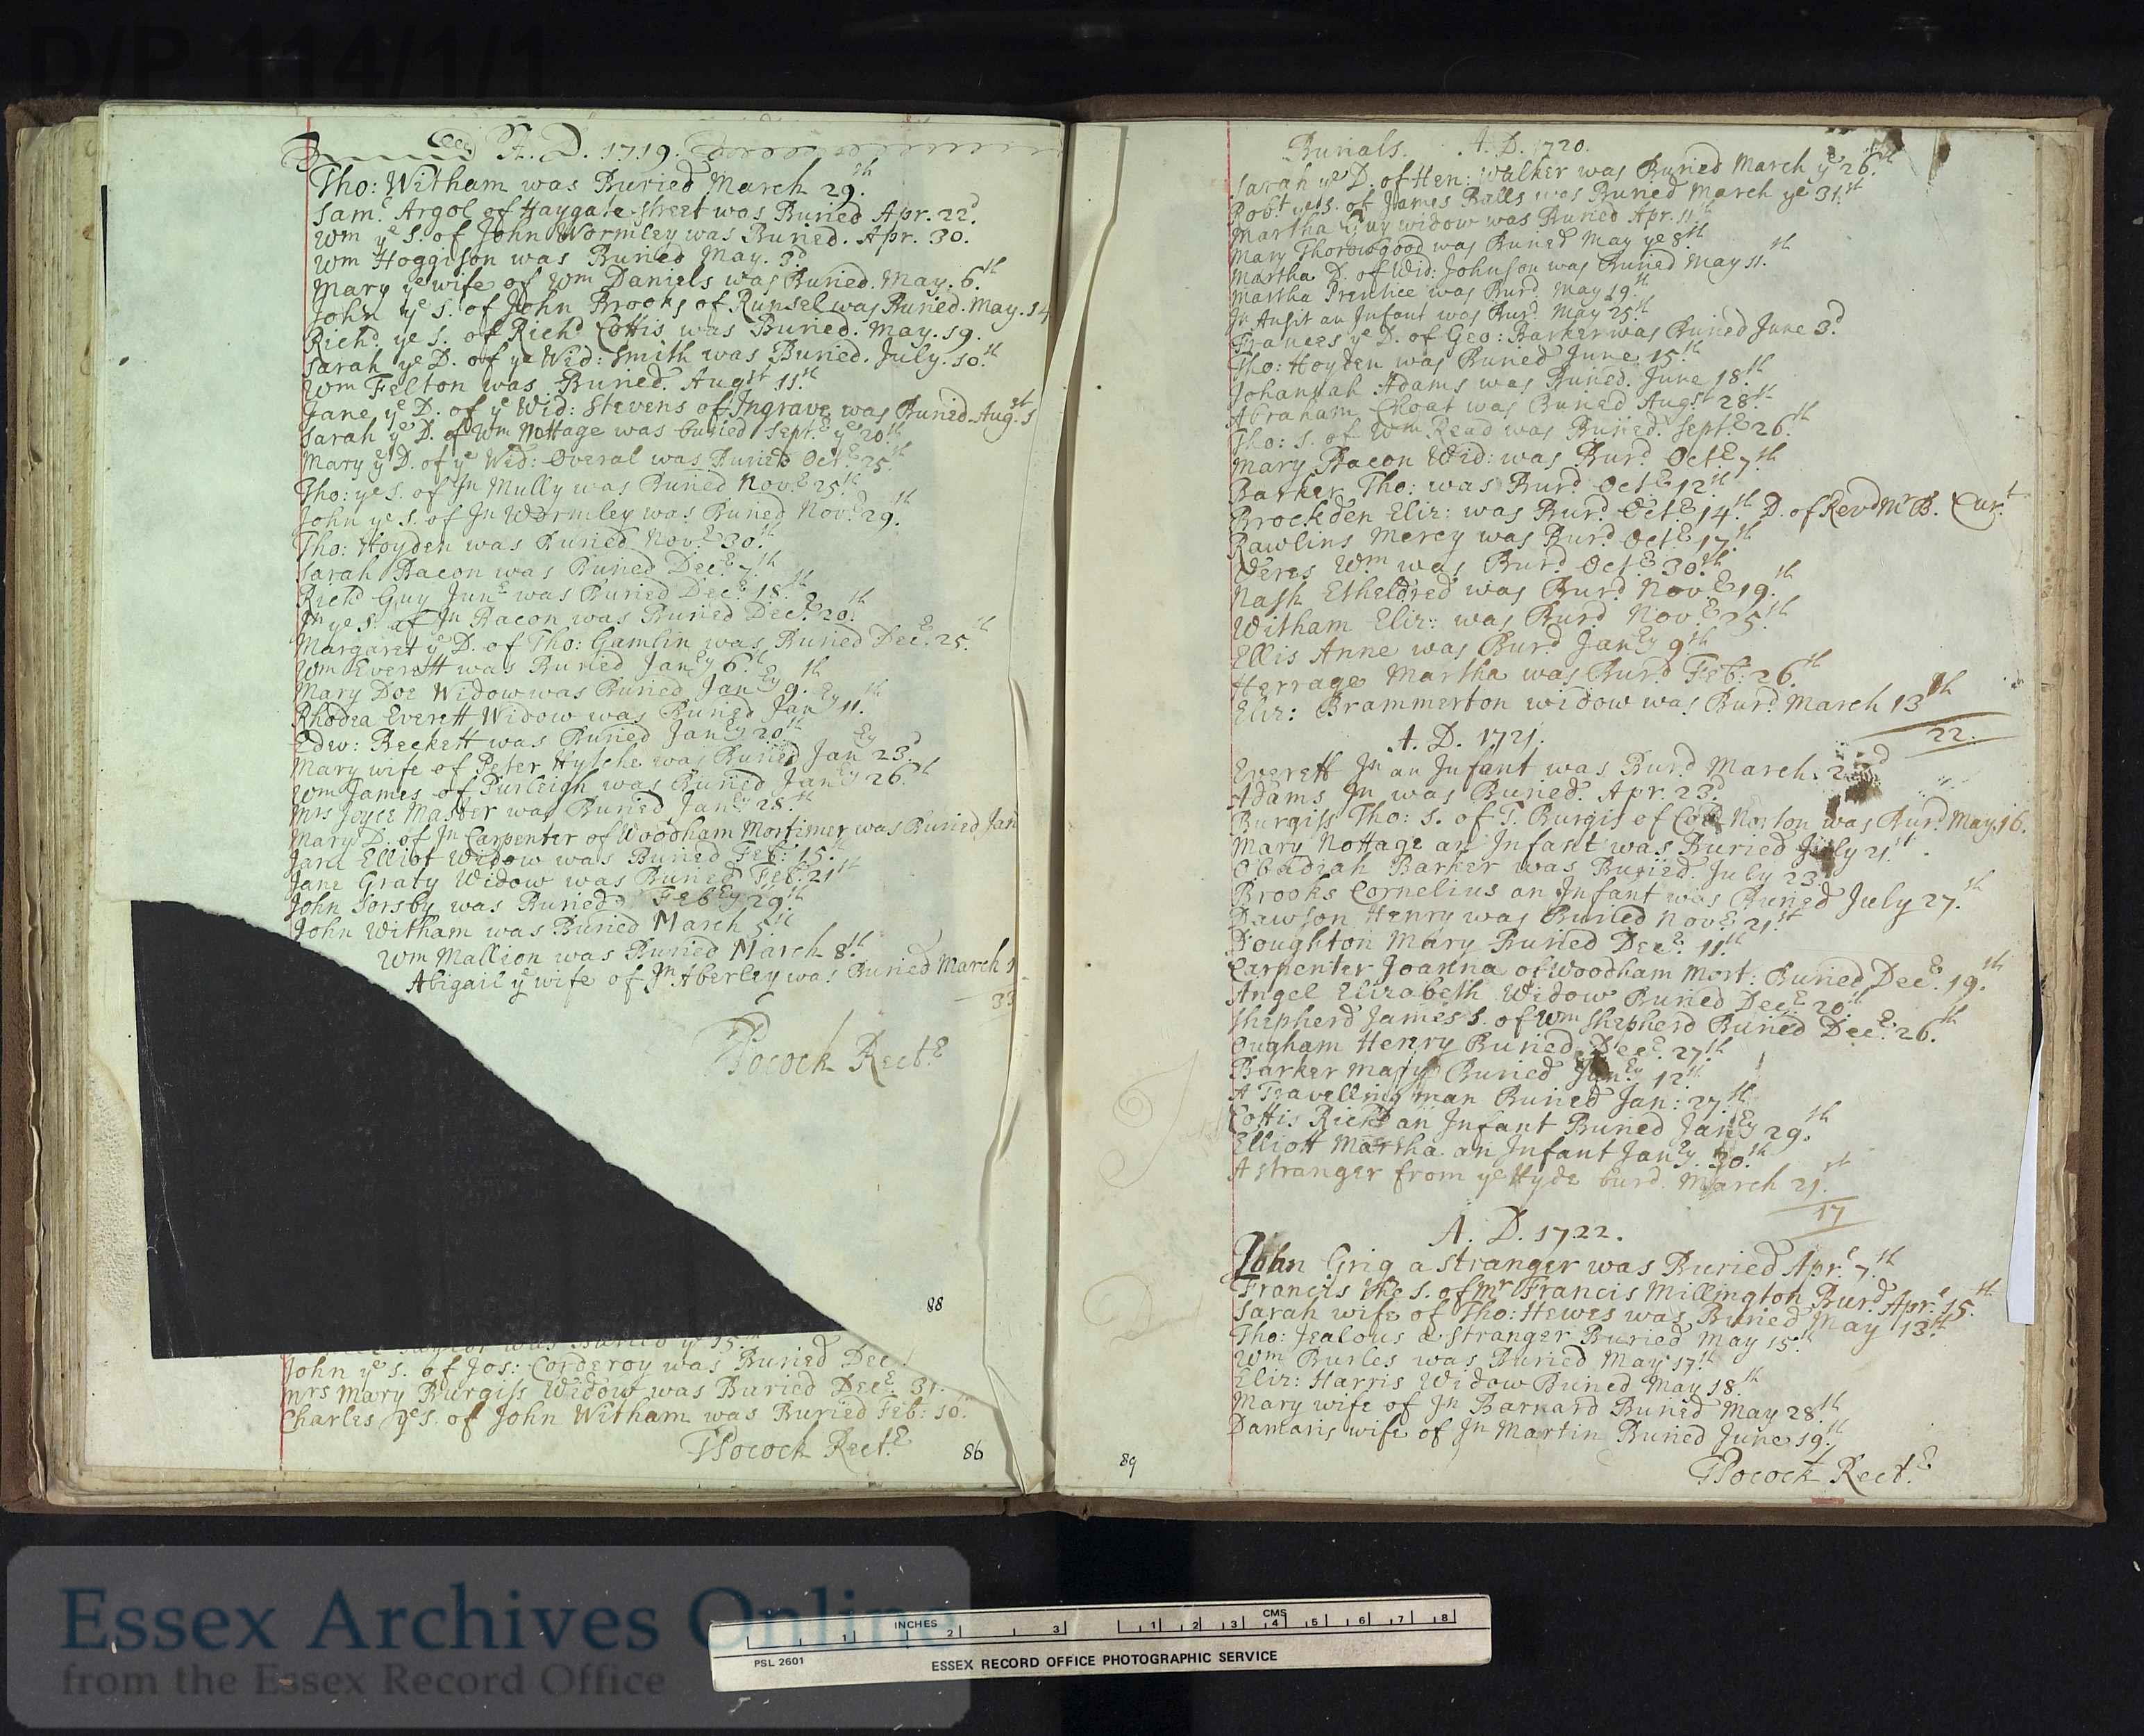 D/P 114/1/1
A. D. 1719.
Tho: Witham was Buried March 29.th
Sam.l Argol of Haygate street was Buried Apr. 22.d
Wm ye S. of John Wormley was Buried. Apr. 30.
Wm Hoggison was Buried May. 3.d
Mary ye wife of Wm Daniels was Buried. May. 6.th
John ye S. of John Brooks of Runsel was Buried. May. 14
Rich.d ye S. of Rich.d Cottis was Buried. May. 19.
Sarah ye D. of ye Wid: Smith was Buried. July. 10.th
Wm Felton was Buried. Augst 11.th
Jane ye D. of ye Wid: Stevens of Ingrave was Buried. Aug.st
Sarah ye D. of Wm Nottage was buried Sept.r ye 20.th
Mary ye D. of ye Wid: Overal was Buried Oct.r 25.th
Tho: ye S. of Jn Mully was Buried Nov.r 25.th
John ye S. of Jn Wormley was Buried Nov.r 29.th
Tho: Hoyden was Buried Nov.r 30.th
Sarah Bacon was Buried Dec.r 7.th
Rich.d Guy Jun.r was Buried Dec.r 18.th
Jn ye S. of Jn Bacon was Buried Dec.r 20.th
Margaret ye D. of Tho: Gamlin was Buried Dec.r 25.th
Wm Everett was Buried Janry 6.th
Mary Doe Widow was Buried Janry 9.th
Rhodea Everett Widow was Buried Janry 11.th
Edw: Beckett was Buried Janry 20th
Mary wife of Peter Hytche was Buried Janry 23.d
Wm James of Purleigh was Buried Janry 26.th
Mrs Joyce Master was Buried Janry 28.th
Mary D. of Jn Carpenter of Woodham Mortimer was Buried Jan
Jane Elliot Widow was Buried Feb: 15.th
Jane Graty Widow was Buried Feb: 21st
John Sorsby was Buried Febry 29.th
John Witham was Buried March 5.th
Wm Mallion was Buried March 8.th
Abigail ye wife of Jn Aberley was Buried March 1
33
Pocock Rect.r
88
was Buried ye 15th
John ye S. of Jos: Corderoy was Buried Dec
Mrs Mary Burgiss Widow was Buried Dec.r 31.
Charles ye S. of John Witham was Buried Feb: 10.th
Pocock Rect.r
86
Burials. A. D. 1720.
Sarah ye D. of Hen: Walker was Buried March ye 26.th
Robt ye S. of James Balls was Buried March ye 31.st
Martha Guy widow was Buried Apr. 11.th
Mary Thorowgood was Buried May ye 8.th
Martha D. of Wid: Johnson was Buried May 11.th
Martha Prentice was Bur.d May 19.th
Jn an Infant was Bur.d May 25.th
Frances ye D. of Geo: Barker was Buried June 3.d
Tho: Hoyden was Buried June 15.th
Johannah Adams was Buried. June 18.th
Abraham Choat was Buried Augst 28.th
Tho: S. of Wm Read was Buried. Sept.r 26.th
Mary Bacon Wid: was Bur.d Oct.r 7.th
Barker Tho: was Bur.d Oct.r 12.th
Brockden Eliz: was Bur.d Oct.r 14.th D. of Revd Mr B. Curt
Rawlins Mercy was Bur.d Oct.r 17.th
Veres Wm was Bur.d Oct.r 30.th
Nash Etheldred was Bur.d Nov.r 19.th
Witham Eliz: was Bur.d Nov.r 25.th
Ellis Anne was Bur.d Janry 9.th
Herrage Martha was Bur.d Feb: 26.th
Eliz: Brammerton widow was Bur.d March 13th
22.
A. D. 1721.
Everett Jn an Infant was Bur.d March. 2
Adams Jn was Buried. Apr. 23.d
Burgiss Tho: S. of T. Burgis of Cold Norton was Bur.d May. 16.
Mary Nottage an Infant was Buried July 21.st
Obadiah Barker was Buried. July 23.
Brooks Cornelius an Infant was Buried July 27.th
Dawson Henry was Buried Nov.r 21st
Doughton Mary Buried Dec.r 11.th
Carpenter Joanna of Woodham Mort: Buried Dec.r 19.th
Angel Elizabeth Widow Buried Dec.r 20.th
Shepherd James S. of Wm Shepherd Buried Dec.r 26.th
Ougham Henry Buried Dec.r 27.th
Barker Mary Buried Janry 12.th
A Travelling man Buried Jan: 27.th
Cottis Richd an Infant Buried Janry 29.th
Elliott Martha an Infant Janry 30.th
A stranger from ye Hyde burd. March 21.st
17
A. D. 1722.
John Grig a stranger was Buried Apr.l 7.th
Francis the S. of Mr Francis Millington Bur.d Apr.l 15.th
Sarah wife of Tho: Hewes was Buried May 13th
Tho: Jealous a Stranger Buried May 15.th
Wm Burles was Buried May 17.th
Eliz: Harris Widow Buried May 18.th
Mary wife of Jn Barnard Buried May 28.th
Damaris wife of Jn Martin Buried June 19.th
Pocock Rect.r
89
Essex Archives Online
from the Essex Record Office
INCHES 1 2 3
CMS 1 2 3 4 5 6 7 8
PSL 2601
ESSEX RECORD OFFICE PHOTOGRAPHIC SERVICE